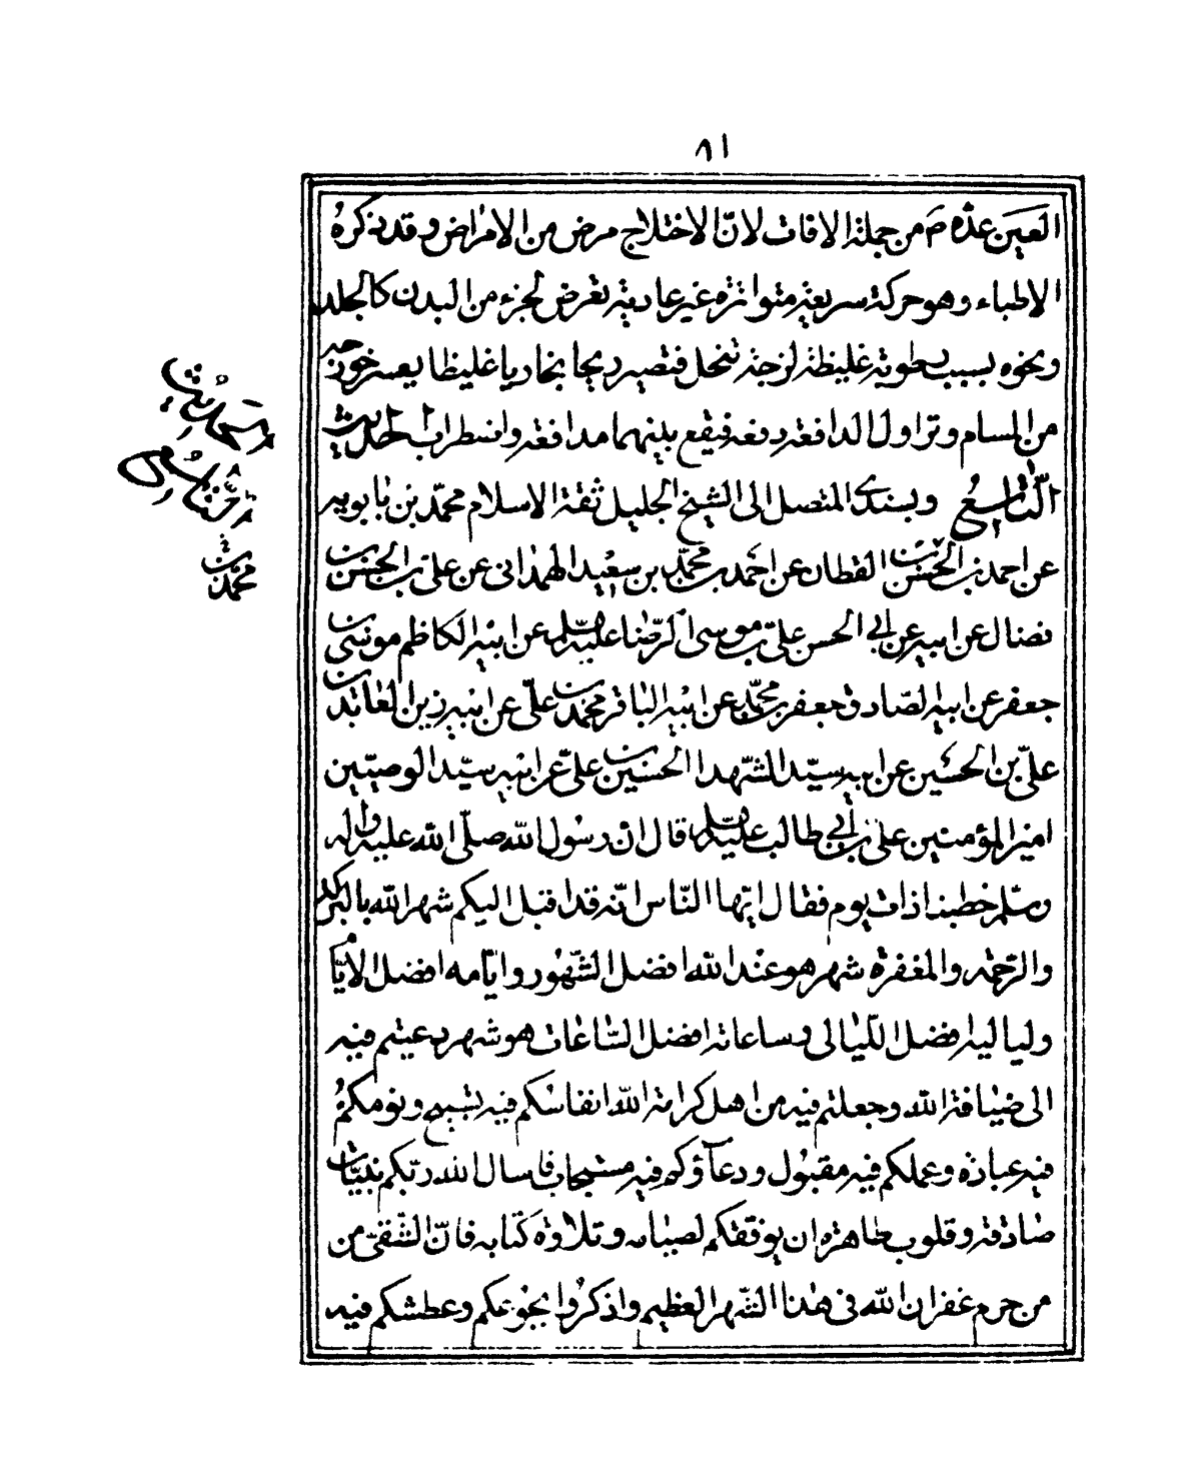 ٨١
العين عدّه ص من جملة الافات لانّ الاختلاج مرض من الامراض وقد ذكره
الاطباء وهو حركة سريعة متواترة غير عادية تعرض لجزء من البدن كالجلد
ونحوه بسبب رطوبة غليظة لزجة تنحل فتصير ريحا بخاريا غليظا يعسر خروجه
من المسام وتزاول الدافعة دفعه فيقع بينهما مدافعة واضطراب الحديث
التاسع وبسندى المتصل الى الشيخ الجليل ثقة الاسلام محمّد بن بابويه
عن احمد بن الحسن القطان عن احمد بن محمّد بن سعيد الهمدانى عن على بن الحسن بن
فضال عن ابيه عن ابي الحسن علىّ بن موسى الرّضا عليه السلم عن ابيه الكاظم موسى بن
جعفر عن ابيه الصّادق جعفر بن محمّد عن ابيه الباقر محمد بن علىّ عن ابيه زين العابدين
علىّ بن الحسين عن ابيه سيّد الشّهدا الحسين بن علىّ عن ابيه سيّد الوصيّين
امير المؤمنين على بن ابي طالب عليه السلم قال ان رسول الله صلّى الله عليه واله
وسلّم خطبنا ذات يوم فقال ايّها النّاس انّه قد اقبل اليكم شهر الله بالبركة
والرّحمة والمغفرة شهر هو عند الله افضل الشّهور وايّامه افضل الايّام
ولياليه افضل اللّيالى وساعاته افضل السّاعات هو شهر دعيتم فيه
الى ضيافة الله وجعلتم فيه من اهل كرامة الله انفاسكم فيه تسبيح ونومكم
فيه عبادة وعملكم فيه مقبول ودعآؤكم فيه مستجاب فاسال الله ربّكم بنيّات
صادقة وقلوب طاهرة ان يوفّقكم لصيامه وتلاوة كتابه فانّ الشّقىّ من
من حرم غفران الله فى هذا الشّهر العظيم واذكروا بجوعكم وعطشكم فيه
محمد بن